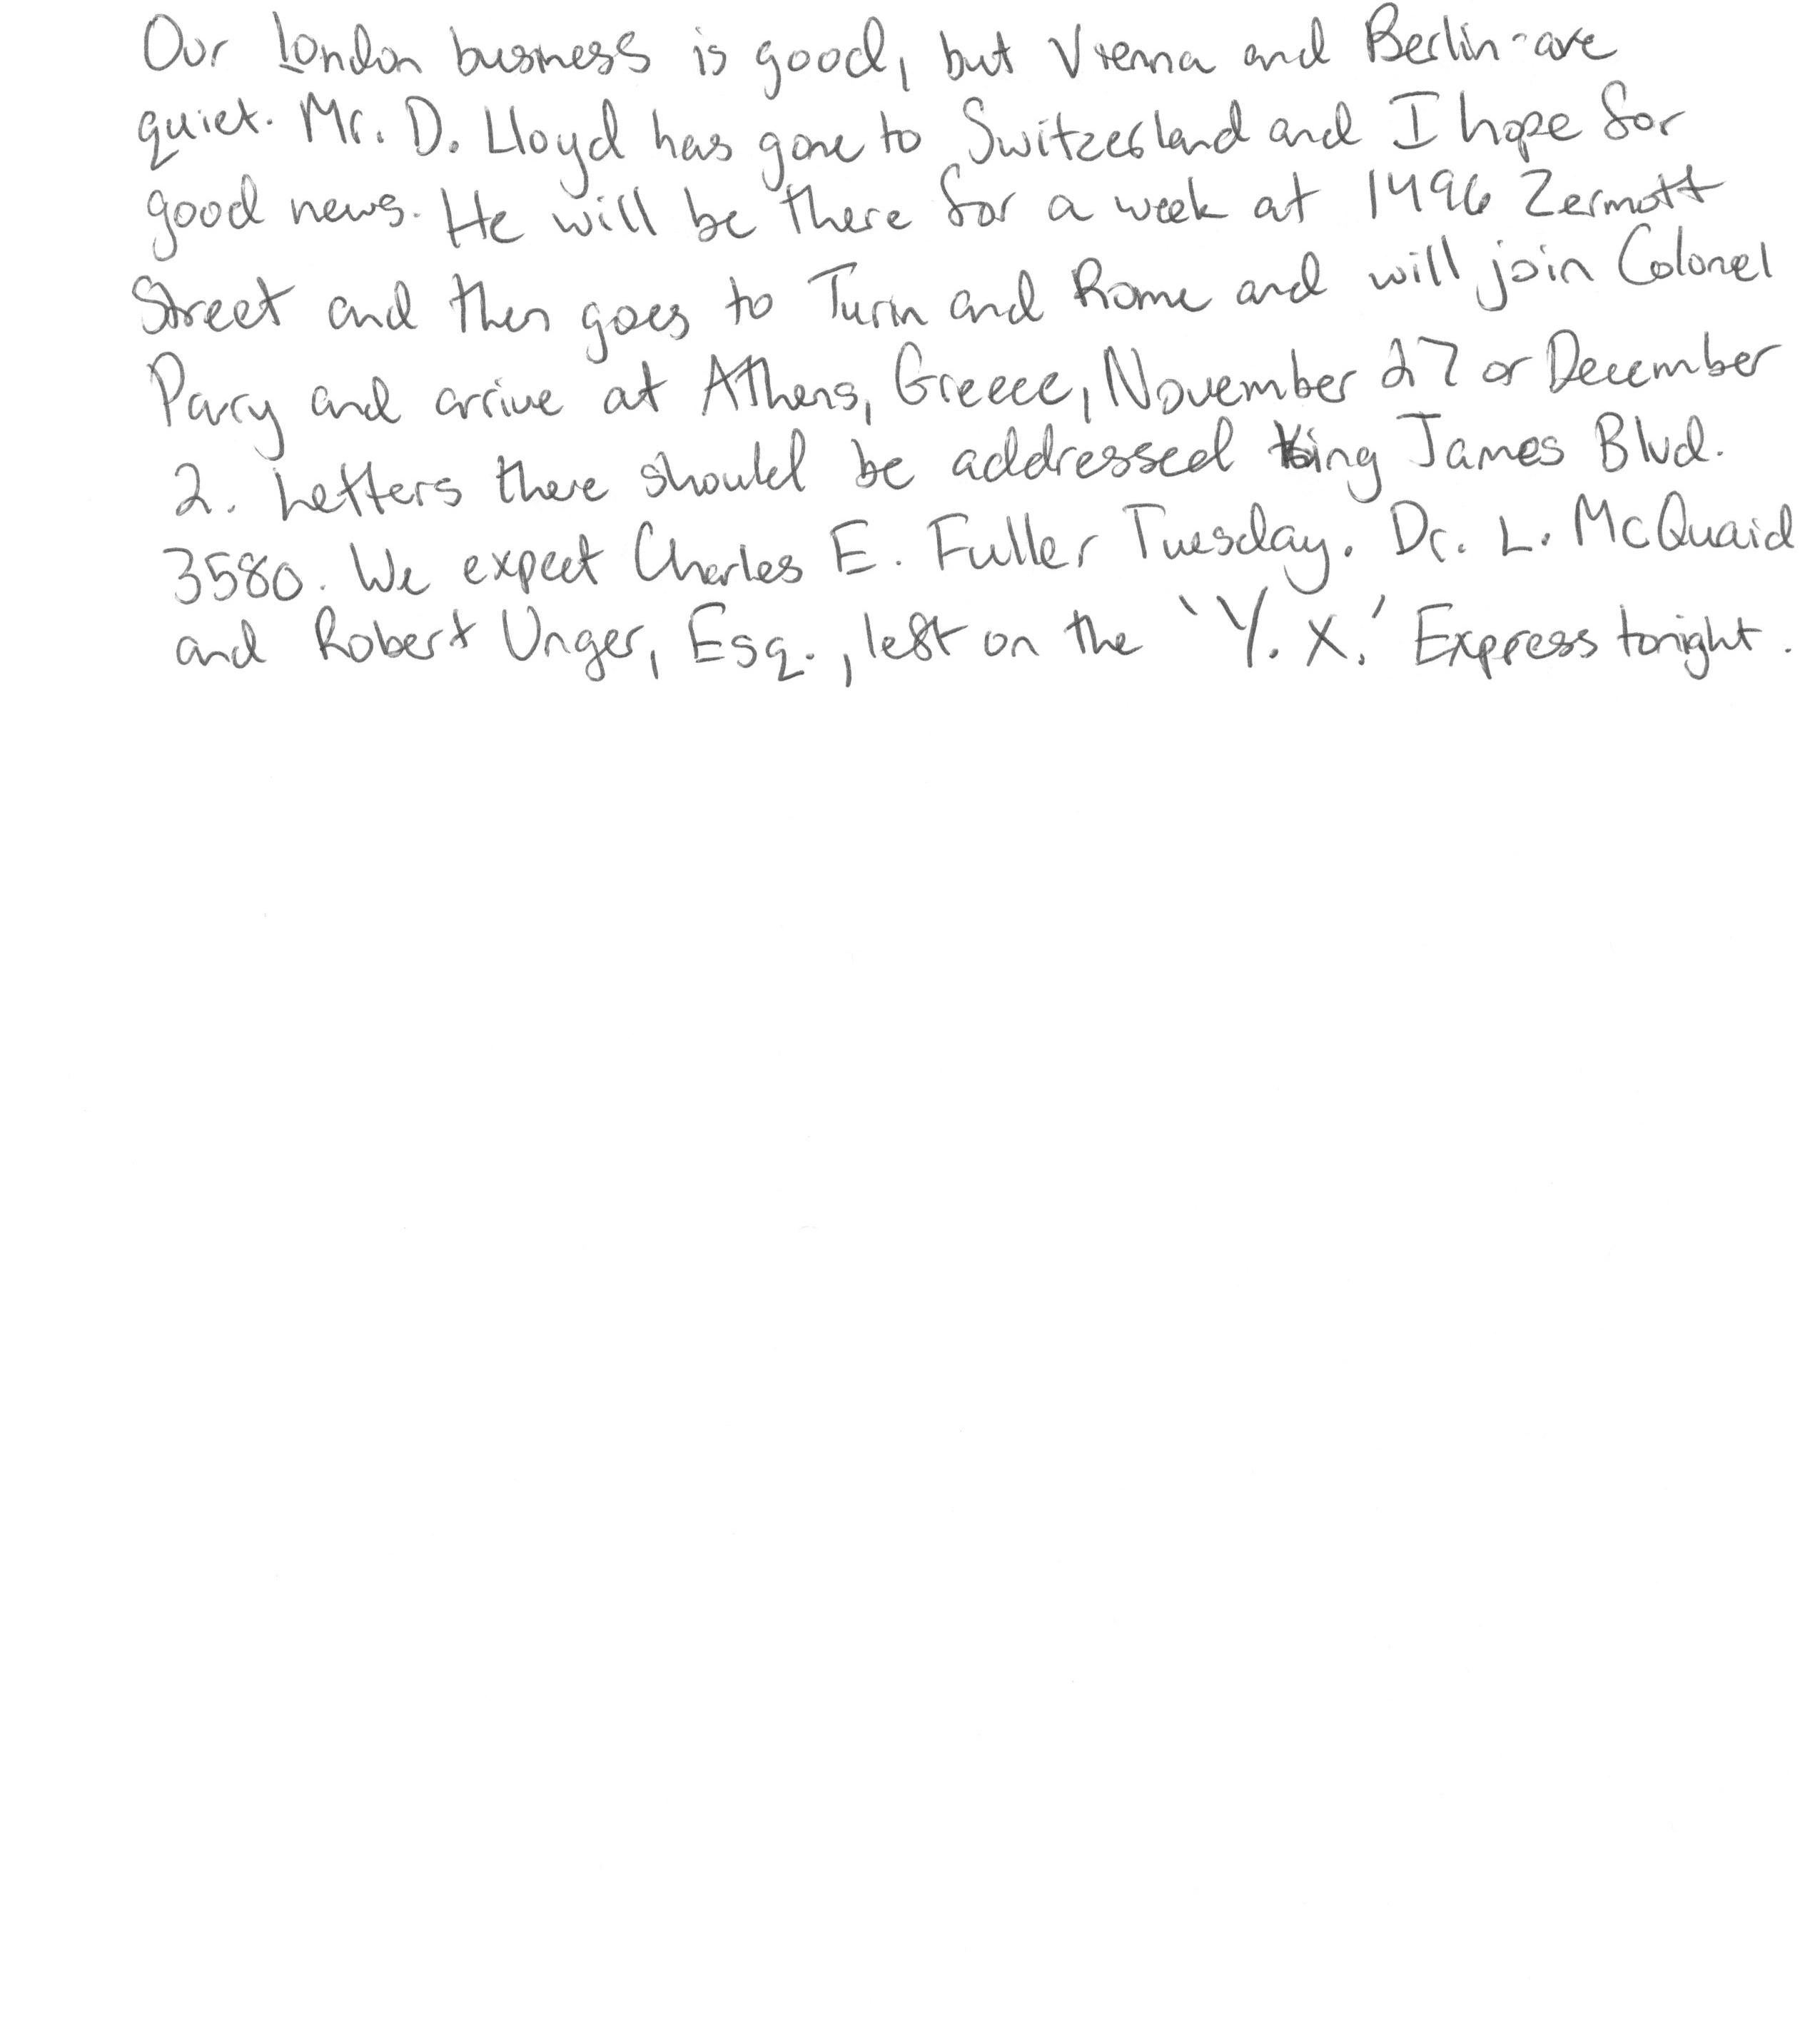 Our London business is good, but Vienna and Berlin are
quiet. Mr. D. Lloyd has gone to Switzerland and I hope for
good news. He will be there for a week at 1496 Zermott
Street and then goes to Turin and Rome and will join Colonel
Parry and arrive at Athens, Greece, November 27 or December
2. Letters there should be addressed King James Blvd.
3580. We expect Charles E. Fuller Tuesday. Dr. L. McQuaid
and Robert Unger, Esq., left on the 'Y. X.' Express tonight.